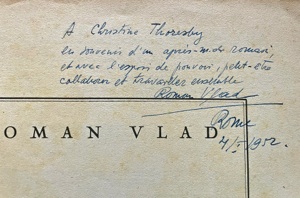 A Christina Thoresby
en souvenir d'un après-midi romain,
et avec l'espoir de pouvoir, peut-être
collaborer et travailler ensemble
Roman Vlad
Rome
1952.
ROMAN VLAD